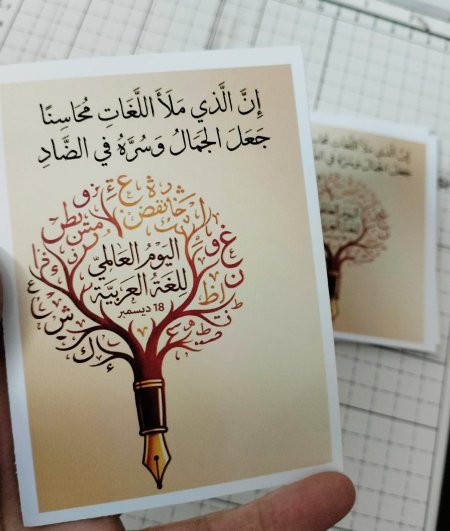 إِنَّ الَّذي مَلَأَ اللَّغَاتِ مُحَاسِنًا
جَعَلَ الجَمَالُ وَسُرَّهُ في الضَّادِ
اليَوْمُ العَالَميّ
لِلُغَةُ العَرَبِيَّة
18 ديسمبر